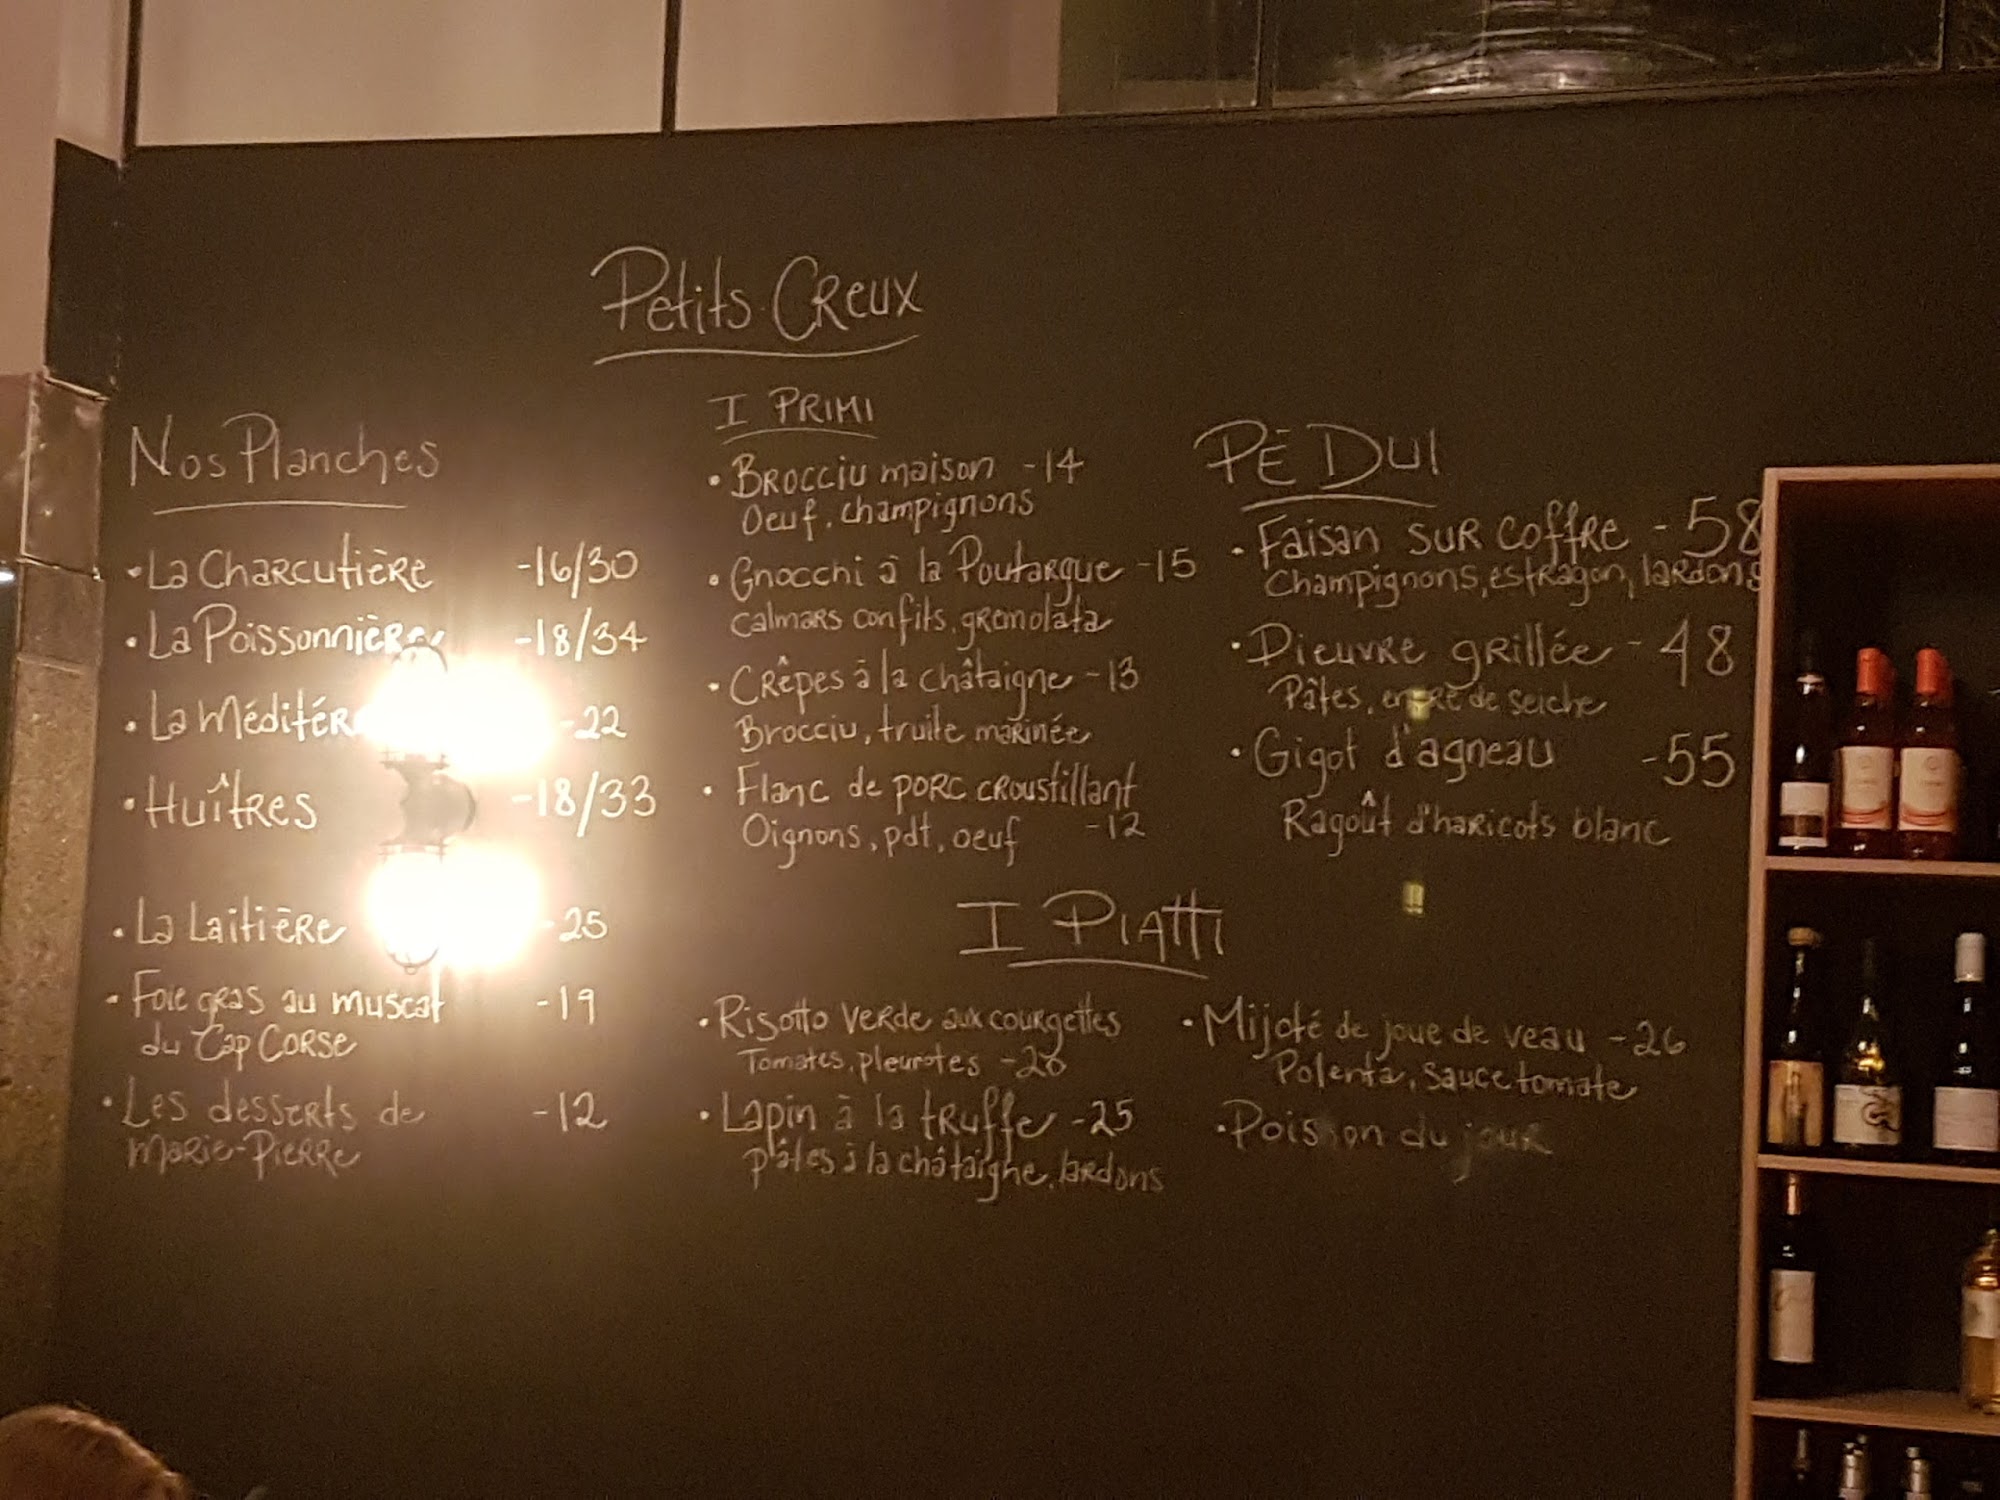 Petits Creux
Nos Planches
• La Charcutière -16/30
• La Poissonnière -18/34
• La Méditér -22
• Huîtres -18/33
• La Laitière -25
• Foie gras au muscat -19
du Cap Corse
• Les desserts de -12
Marie-Pierre
I PRIMI
• Brocciu maison -14
Oeuf, champignons
• Gnocchi à la Poutargue -15
calmars confits, gremolata
• Crêpes à la châtaigne -13
Brocciu, truite marinée
• Flanc de porc croustillant
Oignons, pdt, oeuf -12
PÈ DUI
• Faisan sur coffre -58
Champignons, estragon, lardons
• Pieuvre grillée -48
Pâtes, encre de seiche
• Gigot d'agneau -55
Ragoût d'haricots blanc
I Piatti
• Risotto verde aux courgettes
Tomates, pleurotes
• Lapin à la truffe -25
pâtes à la châtaigne, lardons
• Mijoté de joue de veau -26
Polenta, sauce tomate
• Poisson du jour